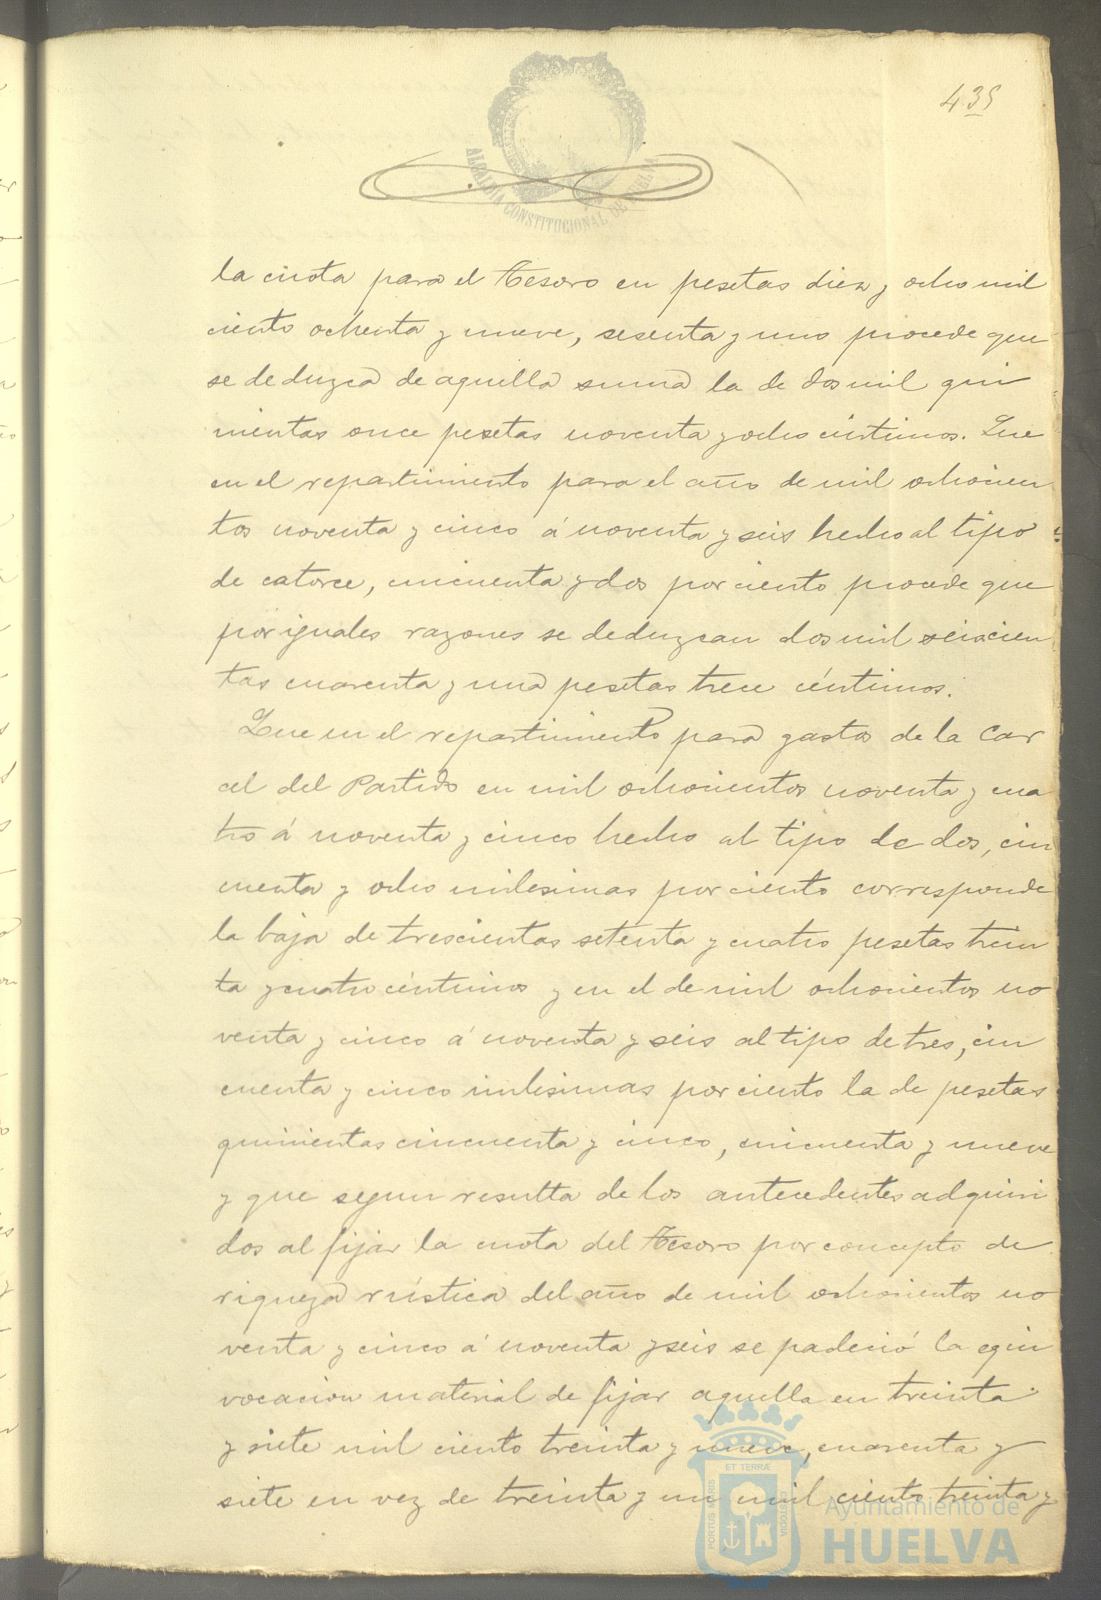 435
ALCALDIA CONSTITUCIONAL DE HUELVA
la cuota para el Tesoro en pesetas diez y ocho mil
ciento ochenta y nueve, sesenta y uno procede que
se deduzca de aquella suma la de dos mil qui
nientas once pesetas noventa y ocho céntimos. Que
en el repartimiento para el año de mil ochocien
tos noventa y cinco á noventa y seis hecho al tipo
de catorce, cincuenta y dos por ciento procede que
por iguales razones se deduzcan dos mil seiscien
tas cuarenta y una pesetas trece céntimos.
Que en el repartimiento para gastos de la Car
cel del Partido en mil ochocientos noventa y cua
tro á noventa y cinco hecho al tipo de dos, cin
cuenta y ocho milesimas por ciento corresponde
la baja de trescientas setenta y cuatro pesetas trein
ta y cuatro céntimos y en el de mil ochocientos no
venta y cinco á noventa y seis al tipo de tres, cin
cuenta y cinco milesimas por ciento la de pesetas
quinientas cincuenta y cinco, cincuenta y nueve
y que segun resulta de los antecedentes adquiri
dos al fijar la cuota del Tesoro por concepto de
riqueza rústica del año de mil ochocientos no
venta y cinco á noventa y seis se padeció la equi
vocacion material de fijar aquella en treinta
y siete mil ciento treinta y nueve, cuarenta y
siete en vez de treinta y un mil ciento treinta y
ET TERRÆ
PORTUS MARIS
CUSTODIA
Ayuntamiento de
HUELVA